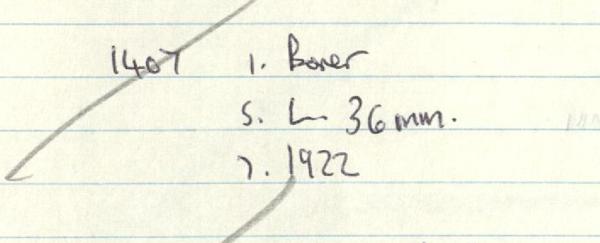 1407 1. Borer
5. L 36mm.
7. 1922